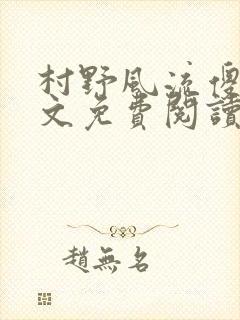 村野風流傻
文免費閱讀
趙無名